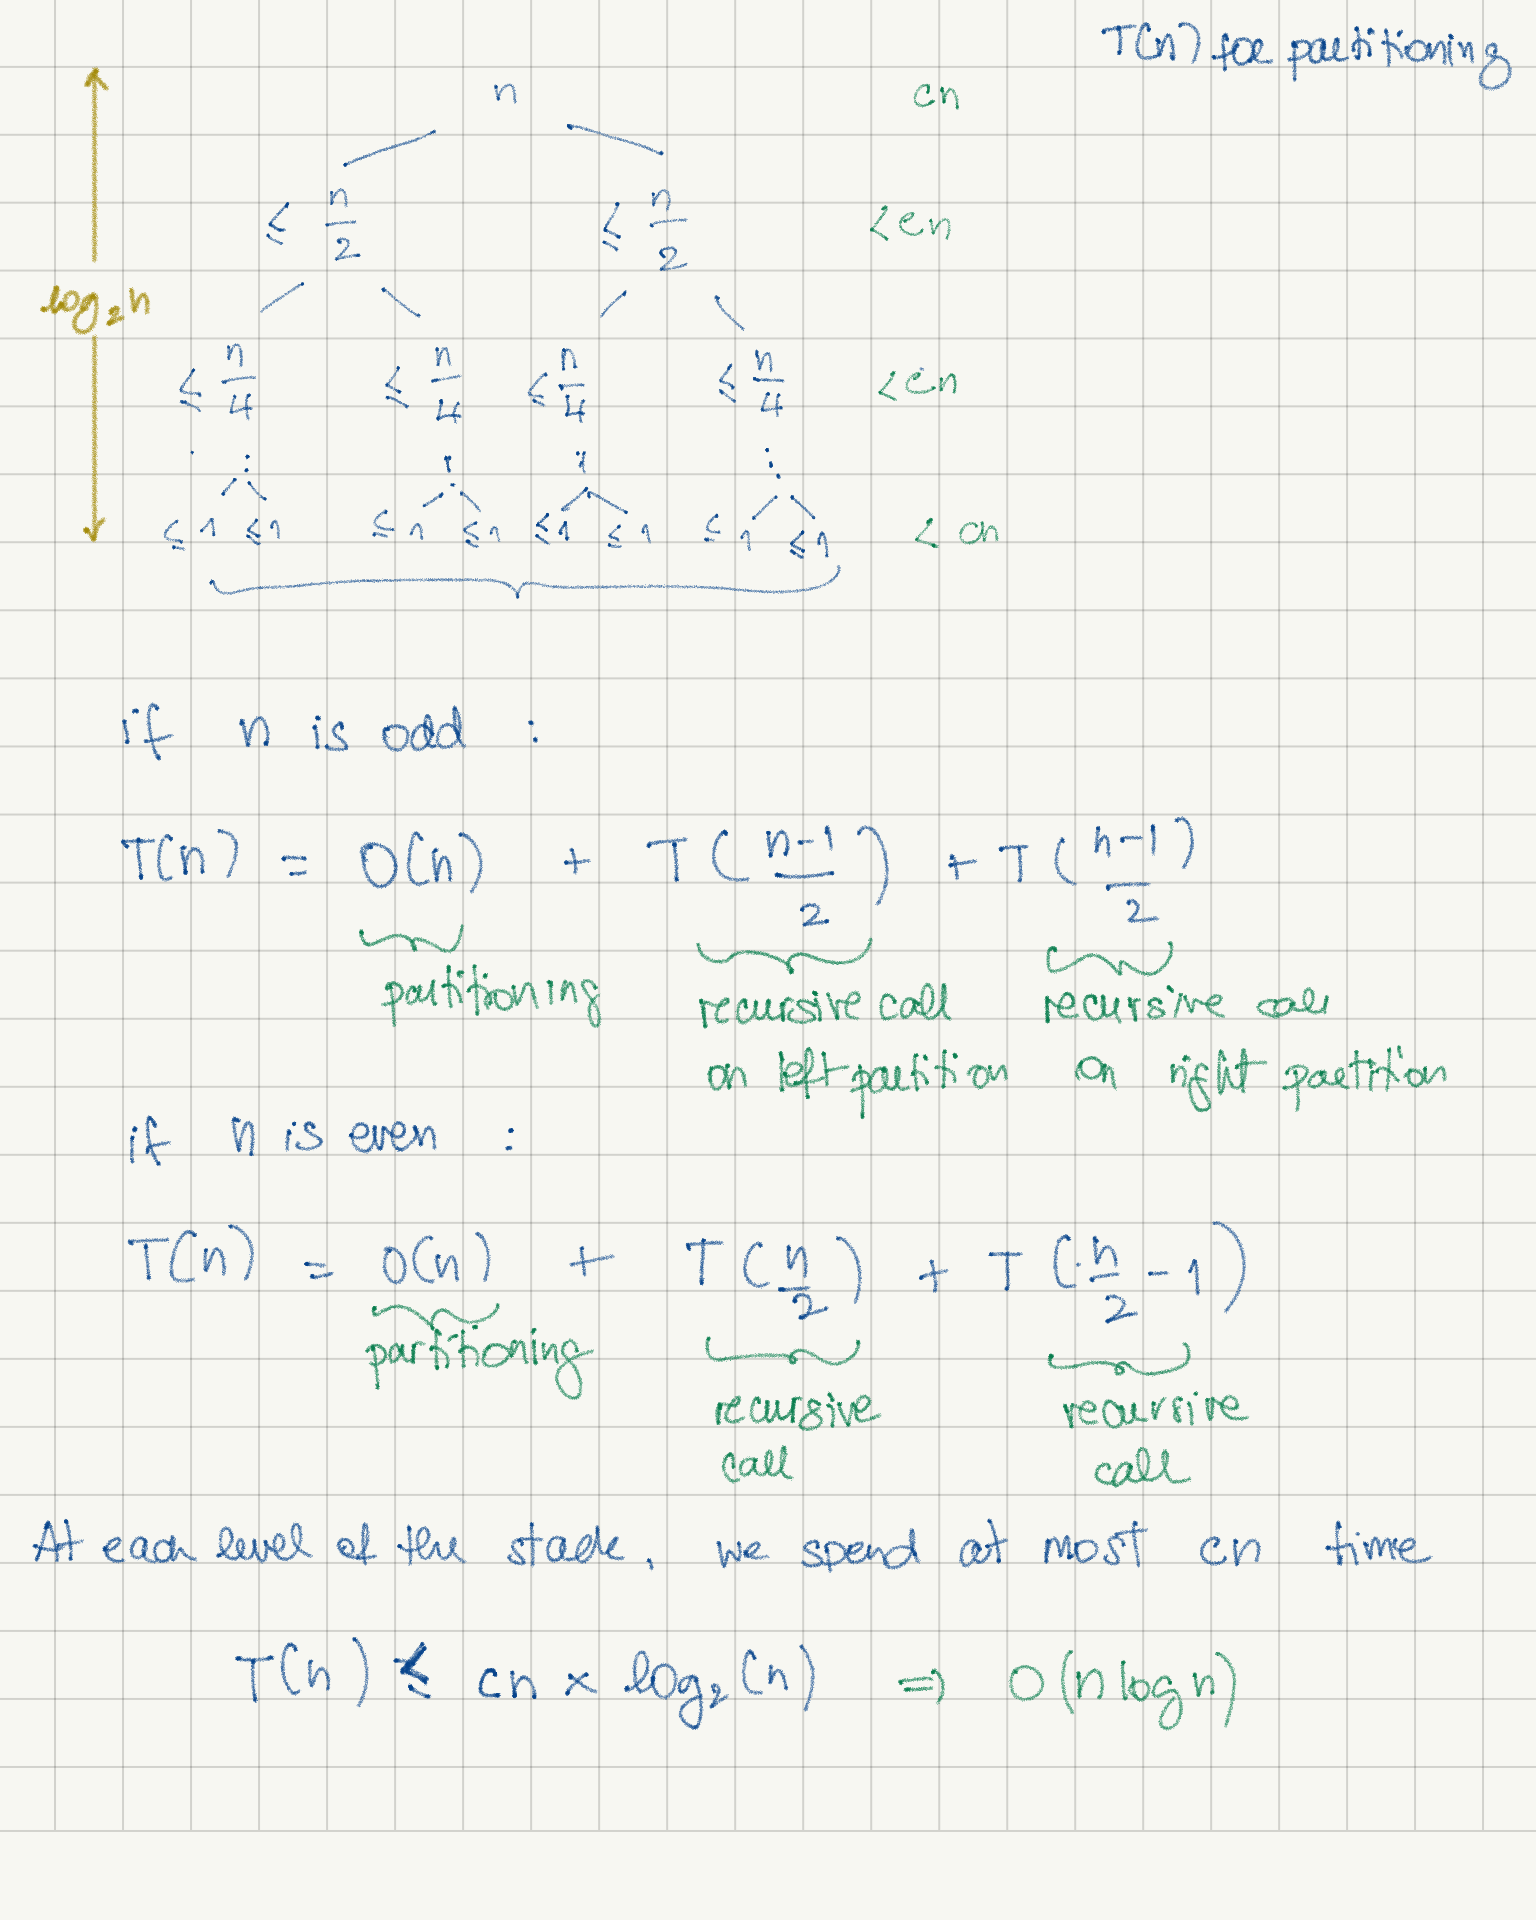 T(n) for partitioning
n cn
≤ n/2 ≤ n/2 < cn
log₂n
≤ n/4 ≤ n/4 ≤ n/4 ≤ n/4 < cn
≤ 1 ≤ 1 ≤ 1 ≤ 1 ≤ 1 ≤ 1 ≤ 1 ≤ 1 < cn
if n is odd :
T(n) = O(n) + T((n-1)/2) + T((n-1)/2)
partitioning recursive call recursive call
on left partition on right partition
if n is even :
T(n) = O(n) + T(n/2) + T(n/2 - 1)
partitioning
recursive recursive
call call
At each level of the stack, we spend at most cn time
T(n) ≤ cn × log₂(n) ⇒ O(n log n)